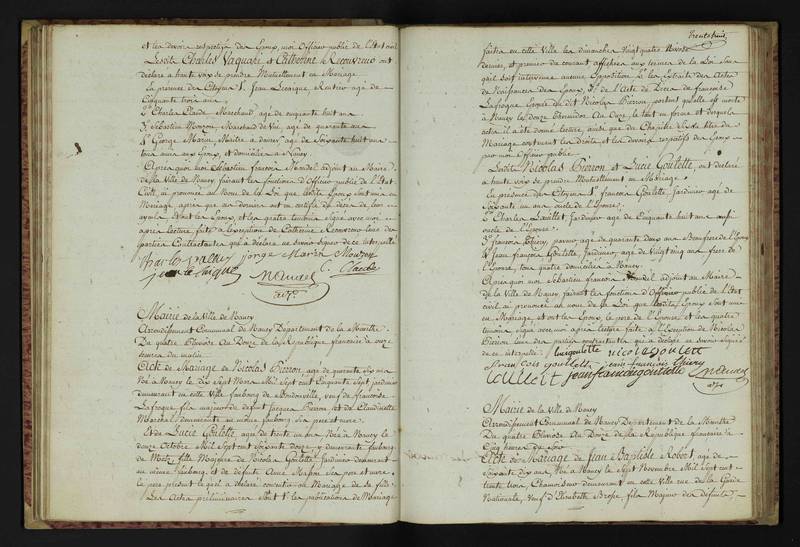 et les devoirs respectifs des Epoux, moi Officier public de l'Etat civil
Lesdits Charles et Catherine ont
déclaré à haute voix se prendre Mutuellement en Mariage
En présence des Citoyens 1° Jean Rentier agé de
Cinquante trois ans
2° Charles Claude Marchand, agé de cinquante huit ans
3° Sébastien Marchand de Vin, agé de quarante ans
4° George Marin, Maitre à danser, agé de Soixante huit ans
tous amis des Epoux, et domiciliés à Nancy.
Après quoi moi Sébastien françois Mandel adjoint au Maire
de la Ville de Nancy, faisant les fonctions d'Officier public de l'Etat
Civil, ai prononcé au Nom de la Loi que lesdits Epoux sont unis en
Mariage, après que ces derniers ont
Et ont les Epoux, et les quatre témoins signé avec moi
après lecture faite à l'exception de Catherine l'une des
parties Contractantes qui a déclaré ne savoir signer de ce interpellée
jorge Marin
Mandel
adjt.
Mairie de la Ville de Nancy
Arrondissement Communal de Nancy Département de la Meurthe
Du quatre Pluviôse An Douze de la République française à onze
heures du matin
Acte de Mariage de Nicolas Pierron, agé de quarante six ans
Né à Nancy le dix Sept Mars Mil Sept cent Cinquante Sept jardinier
demeurant en cette Ville faubourg de veuf de françoise
Lafrogne fils majeur de défunt Jacques Pierron, et de Claudinette
Marchal demeurante au même faubourg ses pere et mere.
Et de Lucie Goulette, agée de trente un ans Née à Nancy le
douze Octobre Mil Sept cent Soixante douze y demeurante faubourg
de fille Majeure de Nicolas Goulette Jardinier demeurant
au même faubourg, et de défunte Anne ses pere et mere.
le pere présent lequel a déclaré consentir au Mariage de sa fille.
Les Actes préliminaires sont 1° les publications de Mariage
faites en cette Ville les dimanches Vingt quatre Nivôse
dernier, et premier du courant affichées aux termes de la Loi sans
qu'il soit intervenu aucune Opposition 2° les Extraits des Actes
de Naissances des Epoux, 3° de l'Acte de Décès de françoise
Lafrogne Epouse dudit Nicolas Pierron portant qu'elle est morte
à Nancy le douze thermidor An Onze, le tout en forme et desquels
actes il a été donné lecture, ainsi que du Chapitre Six du titre du
Mariage concernant les droits et les devoirs respectifs des Epoux
par moi Officier public
Lesdits Nicolas Pierron et Lucie Goulette, ont déclaré
à haute voix se prendre Mutuellement en Mariage
En présence des Citoyens 1° françois Goulette Jardinier agé de
Soixante un ans oncle de l'Epouse.
2° Charles Jardinier agé de Cinquante huit ans aussi
oncle de l'Epouse.
3° françois Thiery, paveur, agé de quarante deux ans Beaufrere de l'Epoux
4° Jean françois Goulette, Jardinier, agé de vingt cinq ans frere de
l'Epouse, tous quatre domiciliés à Nancy
Après quoi moi Sébastien françois Mandel adjoint au Maire
de la Ville de Nancy, faisant les fonctions d'Officier public de l'Etat
civil ai prononcé au nom de la Loi que lesdits Epoux sont unis
en Mariage, et ont les Epoux, le pere de l'Epouse, et les quatre
témoins signé avec moi après lecture faite à l'Exception de Nicolas
Pierron l'une des parties contractantes qui a déclaré ne savoir signer
de ce interpellé. Lucigoulette nicolas goulett
francois goulette jean françois thiery
jean francois goulette Mandel
adjt
Mairie de la Ville de Nancy
Arrondissement Communal de Nancy Département de la Meurthe
Du quatre Pluviôse An Douze de la République française à
heures du Soir
Acte de Mariage de Jean Baptiste Robert, agé de
Soixante dix ans, Né à Nancy le Sept Novembre Mil Sept cent
trente trois, Chamoiseur demeurant en cette Ville rue de la Garde
Nationale, Veuf d'Elisabeth Brosse fils Majeur des défunts